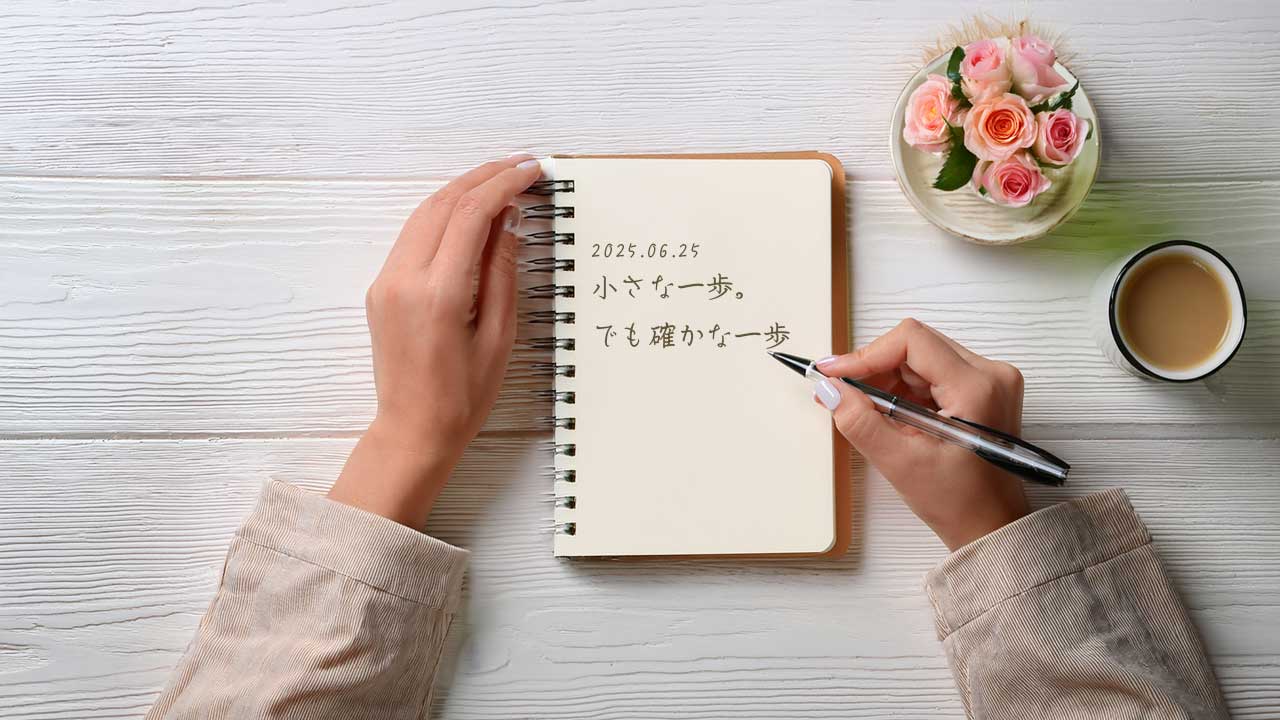 2025.06.25
小さな一歩。
でも確かな一歩